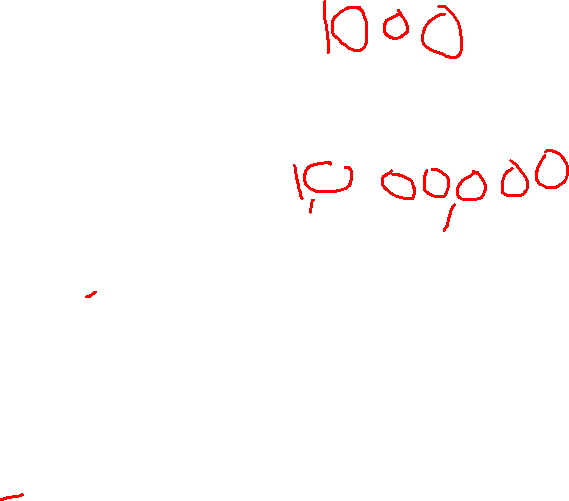 1000
1,000,000